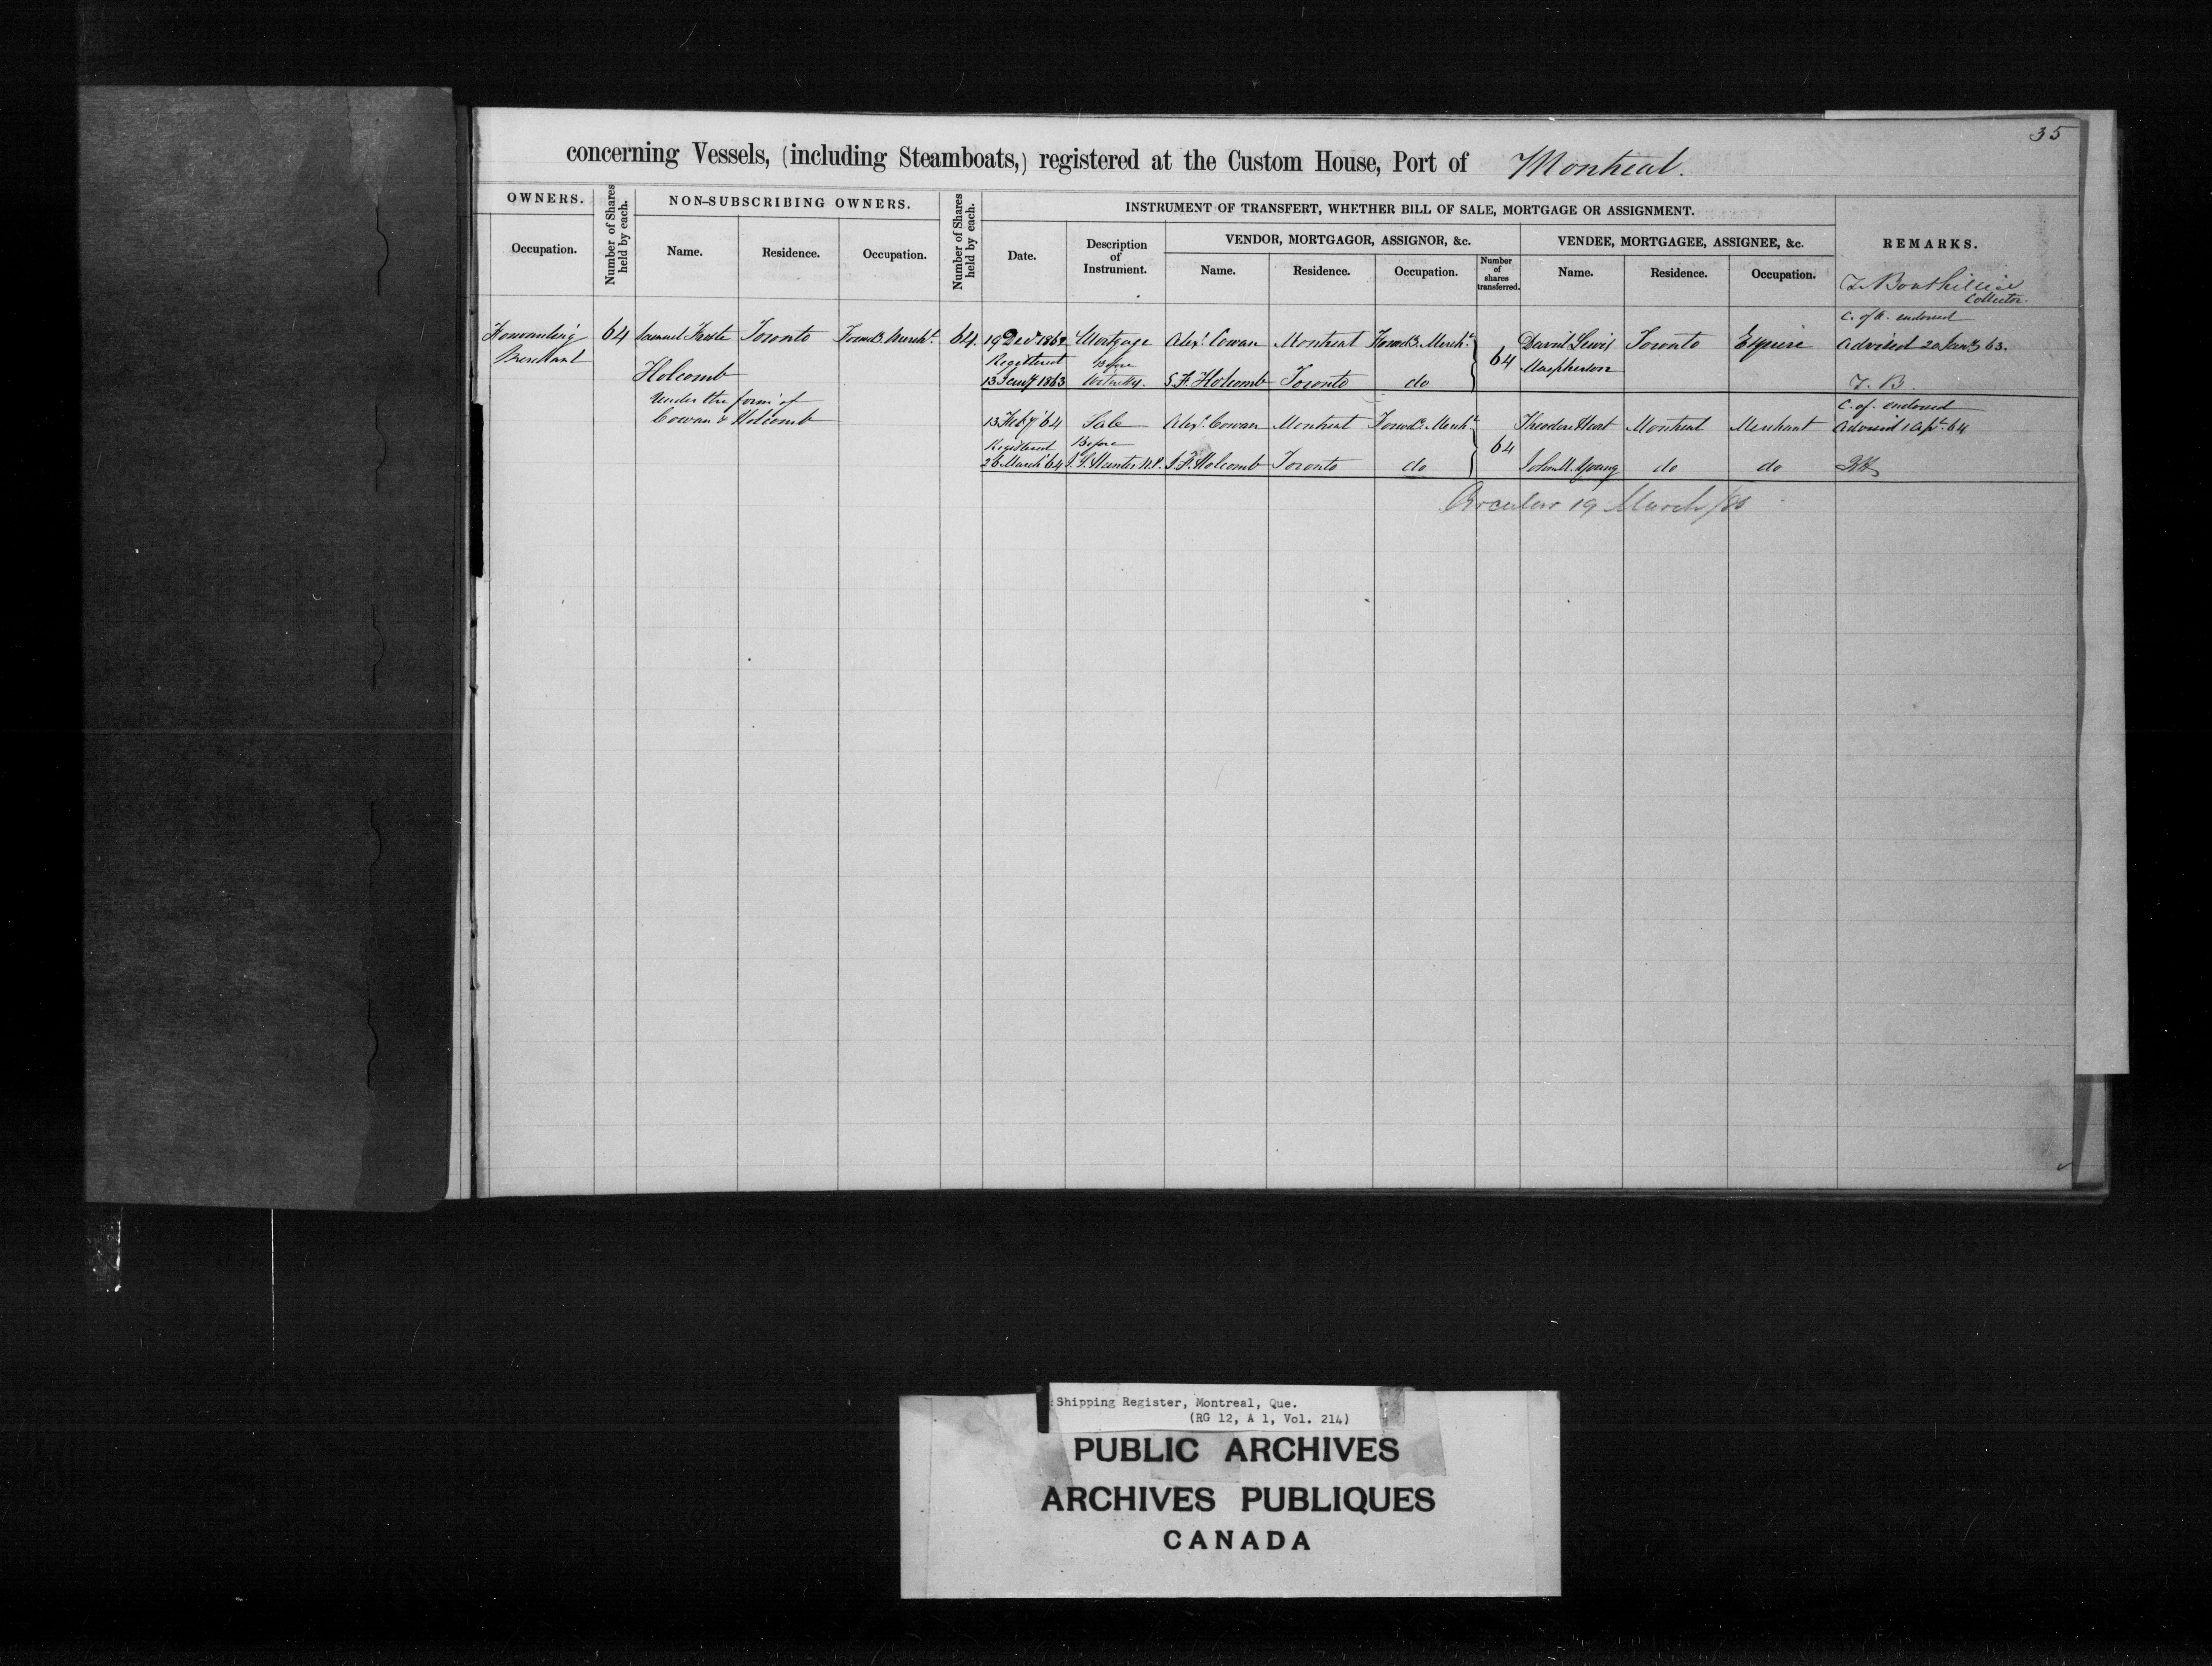 35
concerning Vessels, (including Steamboats,) registered at the Custom House, Port of Montreal.
OWNERS.
Number of Shares held by each.
NON-SUBSCRIBING OWNERS.
Number of Shares held by each.
INSTRUMENT OF TRANSFERT, WHETHER BILL OF SALE, MORTGAGE OR ASSIGNMENT.
REMARKS.
Occupation.
Name.
Residence.
Occupation.
Date.
Description of Instrument.
VENDOR, MORTGAGOR, ASSIGNOR, &c.
VENDEE, MORTGAGEE, ASSIGNEE, &c.
Name.
Residence.
Occupation.
Number of shares transferred.
Name.
Residence.
Occupation.
T. Bouthillier
Collector.
C. of R. endorsed
Forwarding 64 Samuel Toronto Forwdg. Mercht. 64. 19 Decr 1862 Mortgage Alexr. Cowan Montreal Forwdg. Mercht. David Lewis Toronto Esquire Advised 20 Jany 63.
Merchant Registered Before 64 Macpherson
Holcomb 13 Jany 1863 Witness S. F. Holcomb Toronto do T. B.
Under the firm of C. of. endorsed
Cowan & Holcomb 13 Feby 64 Sale Alexr. Cowan Montreal Forwdg. Mercht Theodore Hart Montreal Merchant Advised 1 Apl. 64
Registered Before 64
26 March 64 J. S. Hunter N.P. S. F. Holcomb Toronto do John M. Young do do
Circular 19 March/
Shipping Register, Montreal, Que.
(RG 12, A 1, Vol. 214)
PUBLIC ARCHIVES
ARCHIVES PUBLIQUES
CANADA